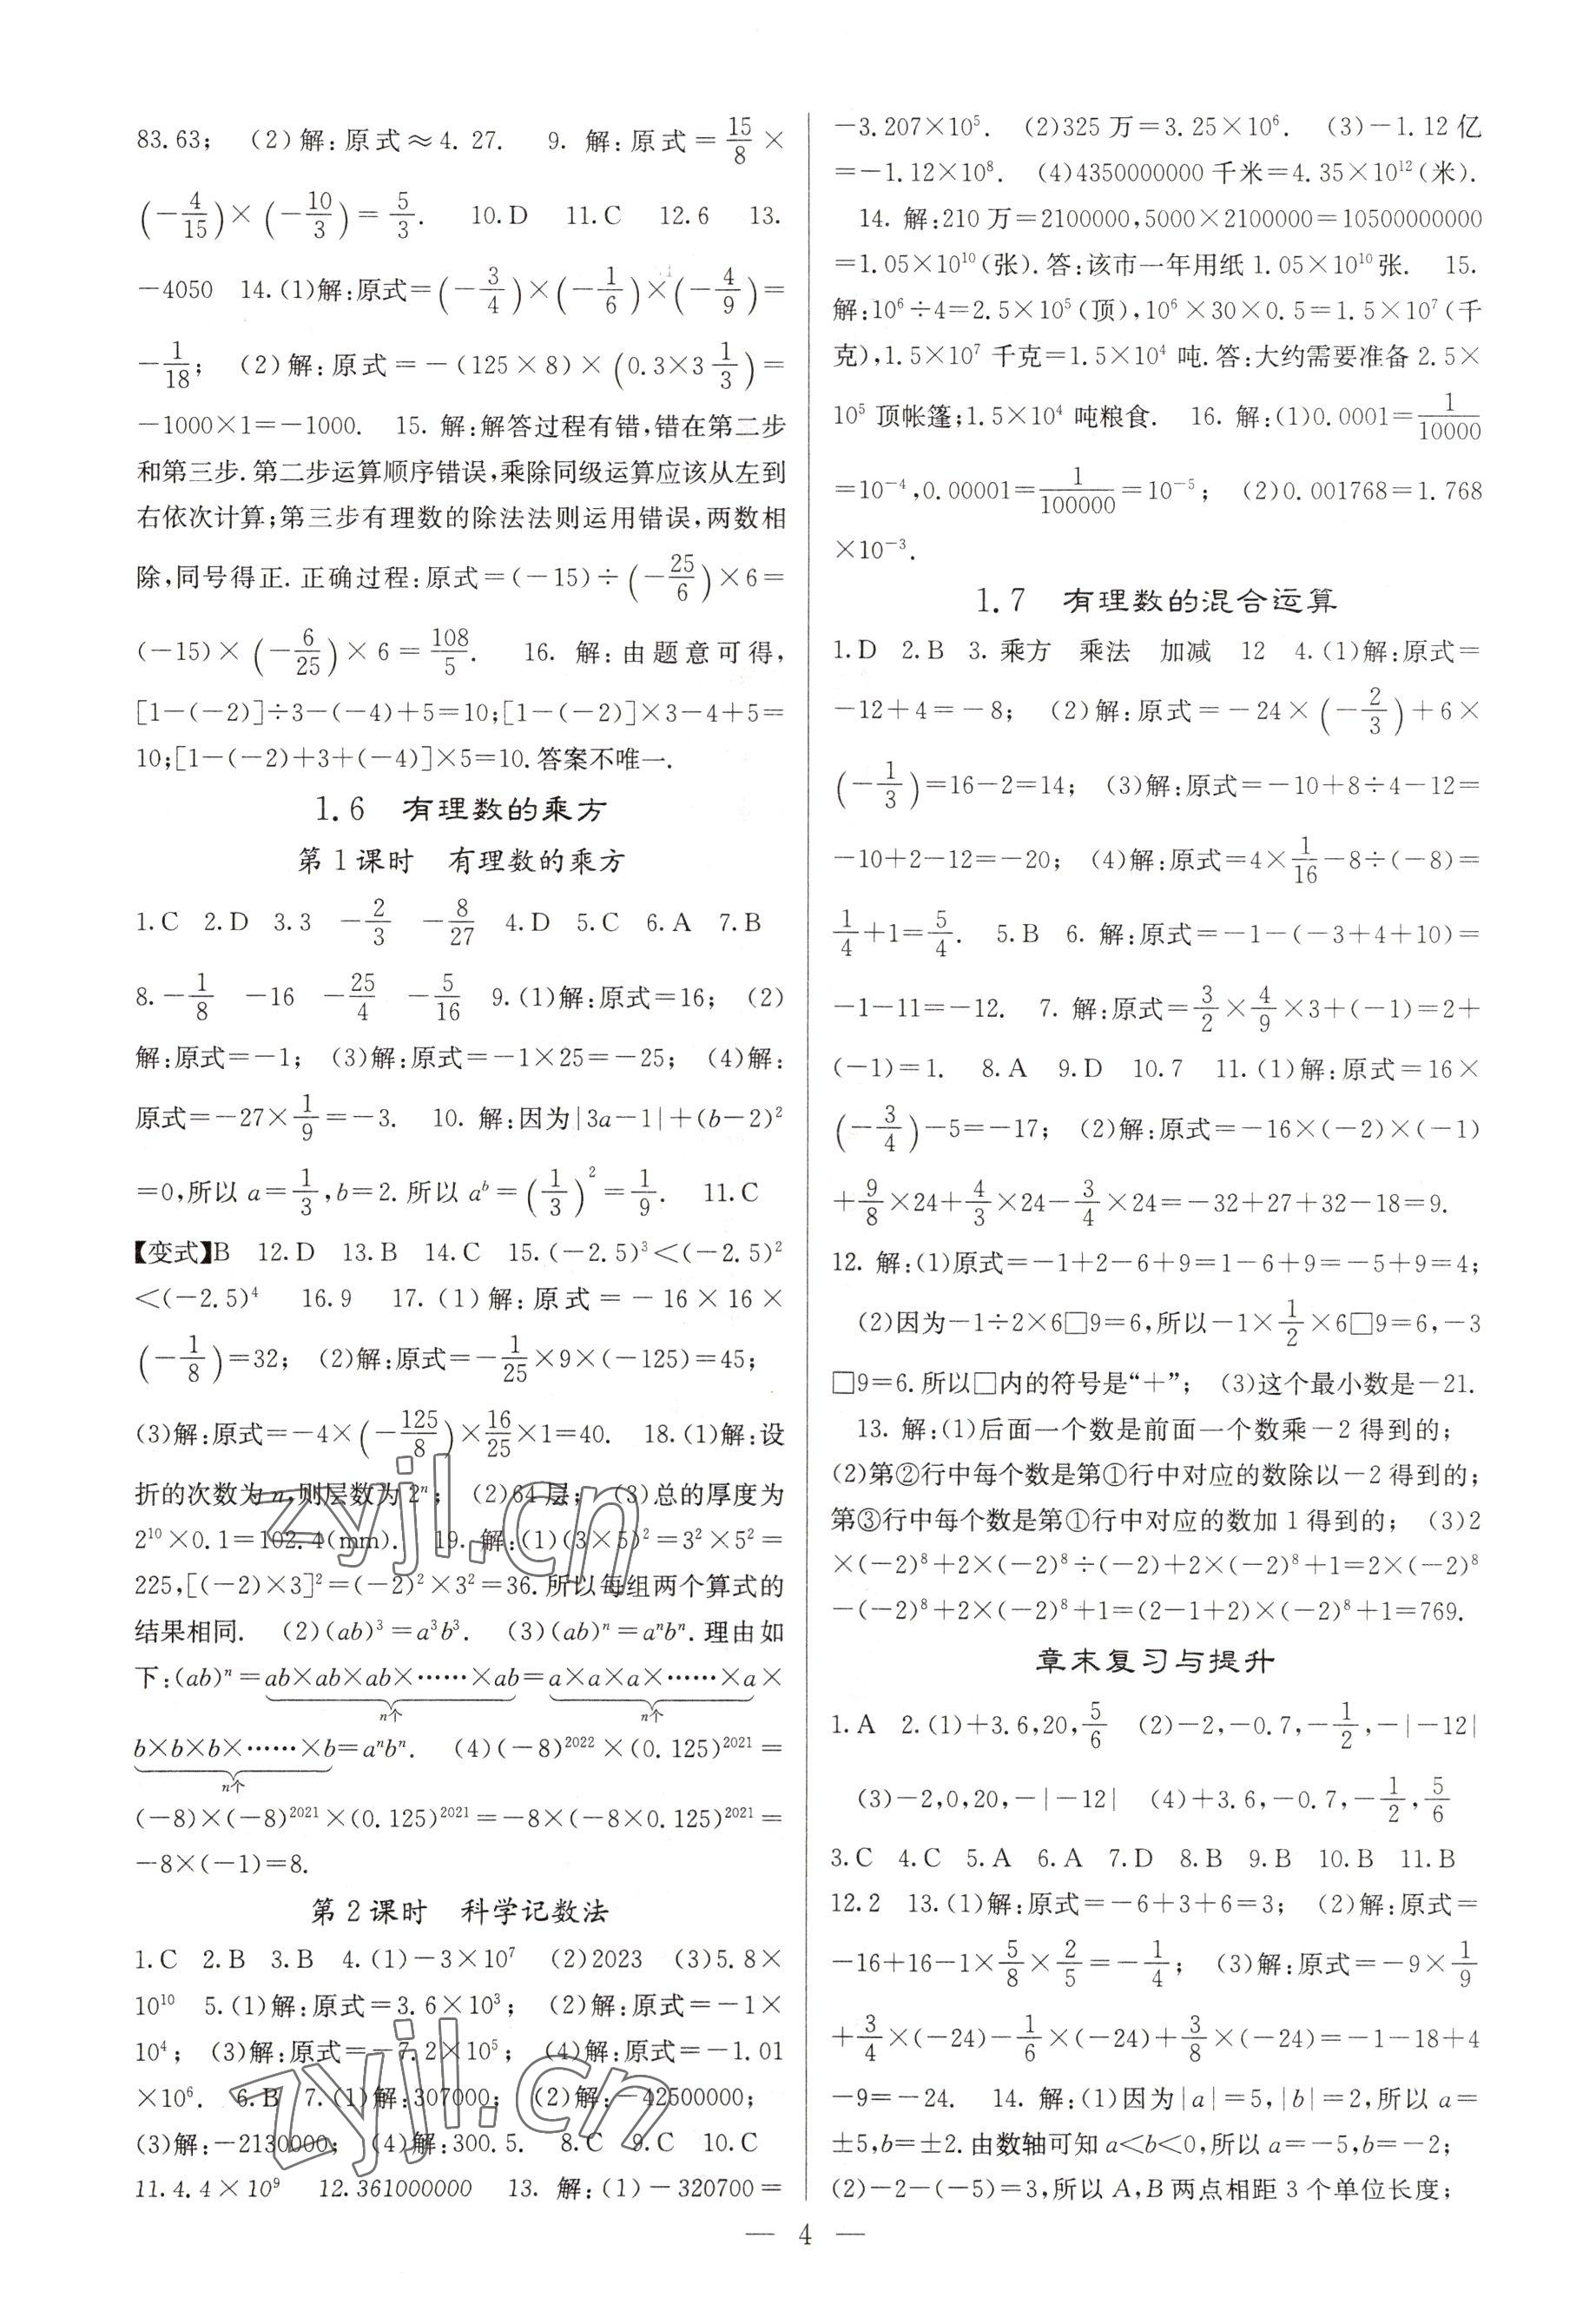 83.63； (2)解：原式≈4.27. 9. 解：原式＝15/8×
(－4/15)×(－10/3)＝5/3. 10.D 11.C 12.6 13.
－4050 14.(1)解：原式＝(－3/4)×(－1/6)×(－4/9)＝
－1/18； (2)解：原式＝－(125×8)×(0.3×3 1/3)＝
－1000×1＝－1000. 15. 解：解答过程有错，错在第二步
和第三步.第二步运算顺序错误，乘除同级运算应该从左到
右依次计算；第三步有理数的除法法则运用错误，两数相
除，同号得正.正确过程：原式＝(－15)÷(－25/6)×6＝
(－15)×(－6/25)×6＝108/5. 16. 解：由题意可得，
[1－(－2)]÷3－(－4)＋5＝10；[1－(－2)]×3－4＋5＝
10；[1－(－2)＋3＋(－4)]×5＝10.答案不唯一.
1.6 有理数的乘方
第1课时 有理数的乘方
1.C 2.D 3.3 －2/3 －8/27 4.D 5.C 6.A 7.B
8.－1/8 －16 －25/4 －5/16 9.(1)解：原式＝16； (2)
解：原式＝－1； (3)解：原式＝－1×25＝－25； (4)解：
原式＝－27×1/9＝－3. 10. 解：因为|3a－1|＋(b－2)²
＝0，所以a＝1/3，b＝2.所以aᵇ＝(1/3)²＝1/9. 11.C
【变式】B 12.D 13.B 14.C 15.(－2.5)³＜(－2.5)²
＜(－2.5)⁴ 16.9 17.(1)解：原式＝－16×16×
(－1/8)＝32； (2)解：原式＝－1/25×9×(－125)＝45；
(3)解：原式＝－4×(－125/8)×16/25×1＝40. 18.(1)解：设
折的次数为n，则层数为2ⁿ； (2)64层； (3)总的厚度为
2¹⁰×0.1＝102.4(mm). 19. 解：(1)(3×5)²＝3²×5²＝
225，[(－2)×3]²＝(－2)²×3²＝36.所以每组两个算式的
结果相同. (2)(ab)³＝a³b³. (3)(ab)ⁿ＝aⁿbⁿ.理由如
下：(ab)ⁿ＝ab×ab×ab×……×ab＝a×a×a×……×a×
n个 n个
b×b×b×……×b＝aⁿbⁿ. (4)(－8)²⁰²²×(0.125)²⁰²¹＝
n个
(－8)×(－8)²⁰²¹×(0.125)²⁰²¹＝－8×(－8×0.125)²⁰²¹＝
－8×(－1)＝8.
第2课时 科学记数法
1.C 2.B 3.B 4.(1)－3×10⁷ (2)2023 (3)5.8×
10¹⁰ 5.(1)解：原式＝3.6×10³； (2)解：原式＝－1×
10⁴； (3)解：原式＝－7.2×10⁵； (4)解：原式＝－1.01
×10⁶. 6.B 7.(1)解：307000； (2)解：－42500000；
(3)解：－2130000； (4)解：300.5. 8.C 9.C 10.C
11.4.4×10⁹ 12.361000000 13. 解：(1)－320700＝
－3.207×10⁵. (2)325万＝3.25×10⁶. (3)－1.12亿
＝－1.12×10⁸. (4)4350000000千米＝4.35×10¹²(米).
14. 解：210万＝2100000，5000×2100000＝10500000000
＝1.05×10¹⁰(张).答：该市一年用纸1.05×10¹⁰张. 15.
解：10⁶÷4＝2.5×10⁵(顶)，10⁶×30×0.5＝1.5×10⁷(千
克)，1.5×10⁷千克＝1.5×10⁴吨.答：大约需要准备2.5×
10⁵顶帐篷；1.5×10⁴吨粮食. 16. 解：(1)0.0001＝1/10000
＝10⁻⁴，0.00001＝1/100000＝10⁻⁵； (2)0.001768＝1.768
×10⁻³.
1.7 有理数的混合运算
1.D 2.B 3. 乘方 乘法 加减 12 4.(1)解：原式＝
－12＋4＝－8； (2)解：原式＝－24×(－2/3)＋6×
(－1/3)＝16－2＝14； (3)解：原式＝－10＋8÷4－12＝
－10＋2－12＝－20； (4)解：原式＝4×1/16－8÷(－8)＝
1/4＋1＝5/4. 5.B 6. 解：原式＝－1－(－3＋4＋10)＝
－1－11＝－12. 7. 解：原式＝3/2×4/9×3＋(－1)＝2＋
(－1)＝1. 8.A 9.D 10.7 11.(1)解：原式＝16×
(－3/4)－5＝－17； (2)解：原式＝－16×(－2)×(－1)
＋9/8×24＋4/3×24－3/4×24＝－32＋27＋32－18＝9.
12. 解：(1)原式＝－1＋2－6＋9＝1－6＋9＝－5＋9＝4；
(2)因为－1÷2×6□9＝6，所以－1×1/2×6□9＝6，－3
□9＝6.所以□内的符号是“＋”； (3)这个最小数是－21.
13. 解：(1)后面一个数是前面一个数乘－2得到的；
(2)第②行中每个数是第①行中对应的数除以－2得到的；
第③行中每个数是第①行中对应的数加1得到的； (3)2
×(－2)⁸＋2×(－2)⁸÷(－2)＋2×(－2)⁸＋1＝2×(－2)⁸
－(－2)⁸＋2×(－2)⁸＋1＝(2－1＋2)×(－2)⁸＋1＝769.
章末复习与提升
1.A 2.(1)＋3.6，20，5/6 (2)－2，－0.7，－1/2，－|－12|
(3)－2，0，20，－|－12| (4)＋3.6，－0.7，－1/2，5/6
3.C 4.C 5.A 6.A 7.D 8.B 9.B 10.B 11.B
12.2 13.(1)解：原式＝－6＋3＋6＝3； (2)解：原式＝
－16＋16－1×5/8×2/5＝－1/4； (3)解：原式＝－9×1/9
＋3/4×(－24)－1/6×(－24)＋3/8×(－24)＝－1－18＋4
－9＝－24. 14. 解：(1)因为|a|＝5，|b|＝2，所以a＝
±5，b＝±2.由数轴可知a＜b＜0，所以a＝－5，b＝－2；
(2)－2－(－5)＝3，所以A，B两点相距3个单位长度；
— 4 —
zyjl.cn
zyjl.cn